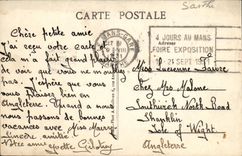 Sarthe
CARTE POSTALE
4 JOURS AU MANS
FOIRE EXPOSITION
21 SEPT
Chère petite amie
J'ai reçu votre carte
cela m'a fait grand plaisir
de voir que vous ne m'oubliez
pas. J'espère que vous
vous plaisez bien en
Angleterre. Quand à nous
nous passons de bonnes
vacances avec Miss Murray
Votre amie
Miss
Chez Mrs Malone
Southwick North Road
Shanklin
Isle of Wight
Angleterre